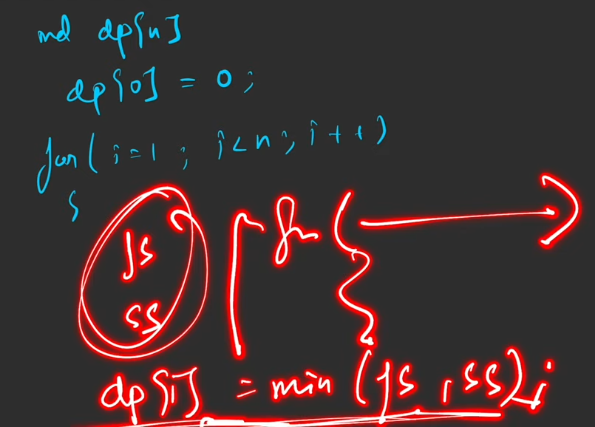 int dp[n]
dp[0] = 0;
for( i=1 ; i<n ; i++)
{
fs [ for ( )
ss {}
dp[i] = min (fs , ss);